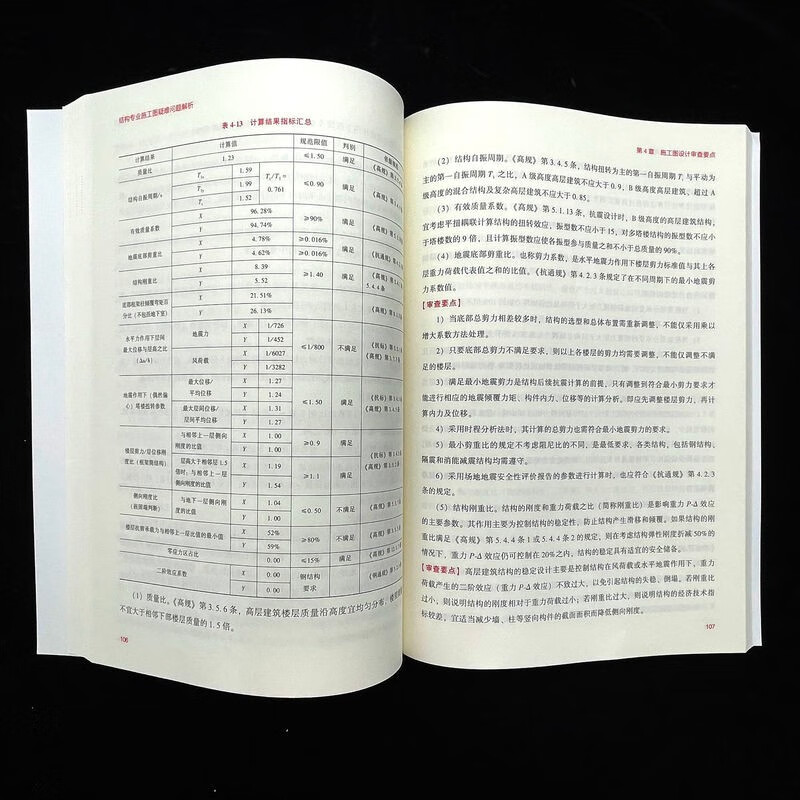 结构专业施工图疑难问题解析
表4-13 计算结果指标汇总
计算结果 计算值 规范限值 判别
质量比 1.23 ≤1.50 满足
结构自振周期/s 1.59 0.761 ≤0.90 满足
1.99
1.52
有效质量系数 X 96.28% ≥90% 满足
Y 94.74%
地震底部剪重比 X 4.78% ≥0.016% 满足
Y 4.62% ≥0.016%
结构刚重比 X 8.39 ≥1.40 满足
Y 5.52 5.4.4条
底部框架柱倾覆弯矩百 X 21.51%
分比（不包括地下室） Y 26.13%
水平力作用下层间 地震力 X 1/726 ≤1/800 不满足
最大位移与层高之比 Y 1/452
（Δu/h） 风荷载 X 1/6027
Y 1/3282
地震作用下（偶然偏 最大位移/ X 1.27 ≤1.50 满足
心）塔楼扭转参数 平均位移 Y 1.24
最大层间位移/ X 1.31
层间平均位移 Y 1.27
楼层剪力/层位移刚 与相邻上一层侧向 X 1.00 ≥0.9 满足
度比（框架筒结构） 刚度的比值 Y 1.00
层高大于相邻层1.5 X 1.19 ≥1.1 满足
倍时：与相邻上一层
侧向刚度的比值 Y 1.54
侧向刚度比 与地下一层侧向刚 X 1.04 ≤0.50 不满足
（嵌固端判断） 度的比值 Y 1.00
楼层抗剪承载力与相邻上一层比值的最小值 X 52% ≥80% 不满足
Y 59%
零应力区占比 0.00 ≤15% 满足
二阶效应系数 X 0.00 钢结构
Y 0.00 要求
（1）质量比。《高规》第3.5.6条，高层建筑楼层质量沿高度宜均匀分布，楼
不宜大于相邻下部楼层质量的1.5倍。
106
第4章 施工图设计审查要点
（2）结构自振周期。《高规》第3.4.5条，结构扭转为主的第一自振周期Tt与平动为
主的第一自振周期T1之比，A级高度高层建筑不应大于0.9，B级高度高层建筑、超过A
级高度的混合结构及复杂高层建筑不应大于0.85。
（3）有效质量系数。《高规》第5.1.13条，抗震设计时，B级高度的高层建筑结构，
宜考虑平扭耦联计算结构的扭转效应，振型数不应小于15，对多塔楼结构的振型数不应小
于塔楼数的9倍，且计算振型数应使各振型参与质量之和不小于总质量的90%。
（4）地震底部剪重比。也称剪力系数，是水平地震力作用下楼层剪力标准值与其上各
层重力荷载代表值之和的比值。《抗通规》第4.2.3条规定了在不同周期下的最小地震剪
力系数值。
【审查要点】
1）当底部总剪力相差较多时，结构的选型和总体布置需重新调整，不能仅采用乘以
增大系数方法处理。
2）只要底部总剪力不满足要求，则以上各楼层的剪力均需要调整，不能仅调整不满
足的楼层。
3）满足最小地震剪力是结构后续抗震计算的前提，只有调整到符合最小剪力要求才
能进行相应的地震倾覆力矩、构件内力、位移等的计算分析。即应先调整楼层剪力，再计
算内力及位移。
4）采用时程分析法时，其计算的总剪力也需符合最小地震剪力的要求。
5）最小剪重比的规定不考虑阻尼比的不同，是最低要求，各类结构，包括钢结构、
隔震和消能减震结构均需遵守。
6）采用场地地震安全性评价报告的参数进行计算时，也应符合《抗通规》第4.2.3
条的规定。
（5）结构刚重比。结构的刚度和重力荷载之比（简称刚重比）是影响重力P-Δ效应
的主要参数。其作用主要为控制结构的稳定性，防止结构产生滑移和倾覆。如果结构的刚
重比满足《高规》第5.4.4条1或5.4.4条2的规定，则在考虑结构弹性刚度折减50%的
情况下，重力P-Δ效应仍可控制在20%之内，结构的稳定具有适宜的安全储备。
【审查要点】高层建筑结构的稳定设计主要是控制结构在风荷载或水平地震作用下，重力
荷载产生的二阶效应（重力P-Δ效应）不致过大，以免引起结构的失稳、倒塌。若刚重比
过小，则说明结构的刚度相对于重力荷载过小；若刚重比过大，则说明结构的经济技术指
标较差，宜适当减少墙、柱等竖向构件的截面面积而降低侧向刚度。
107